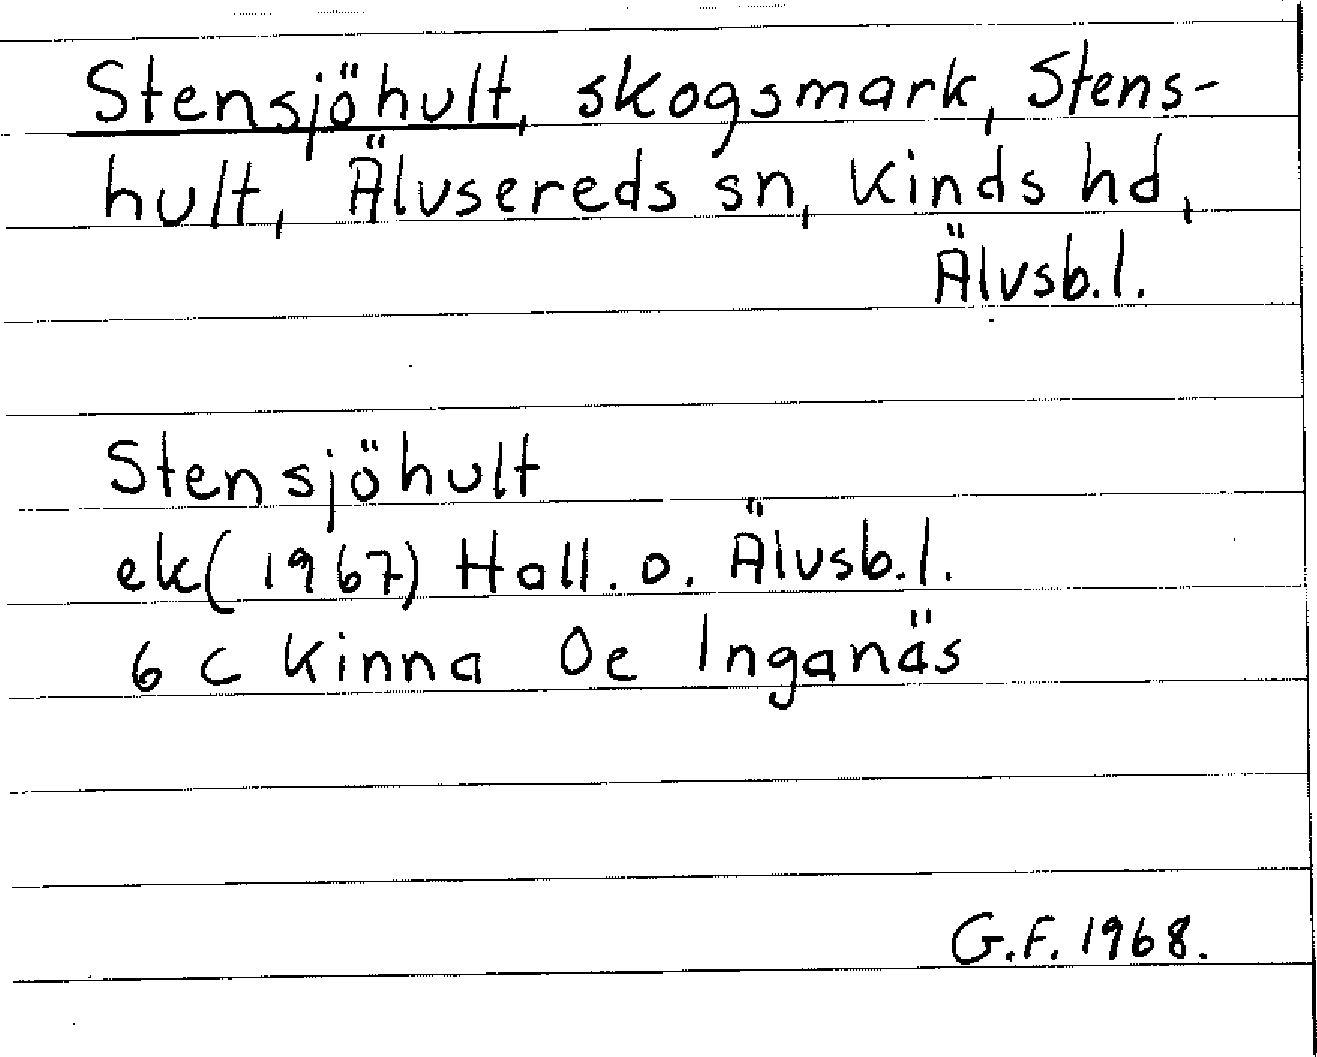 Stensjöhult, skogsmark, Stens-
hult, Älvsereds sn, Kinds hd,
Älvsb.l.
Stensjöhult
ek (1967) Hall. o. Älvsb.l.
6 C Kinna Oe Inganäs
G.F. 1968.